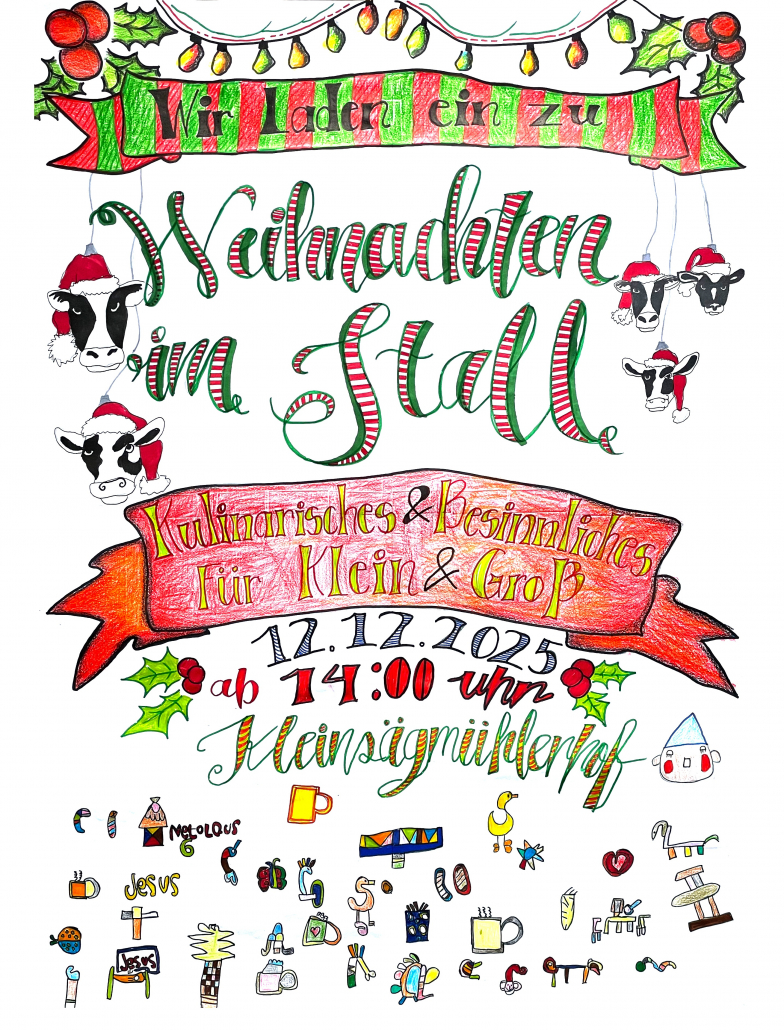 Wir Laden ein zu
Weihnachten
im Stall
Kulinarisches & Besinnliches
Für Klein & Groß
12.12.2025
ab 14:00 uhr
Kleinsägmühlerhof
Jesus
Jesus